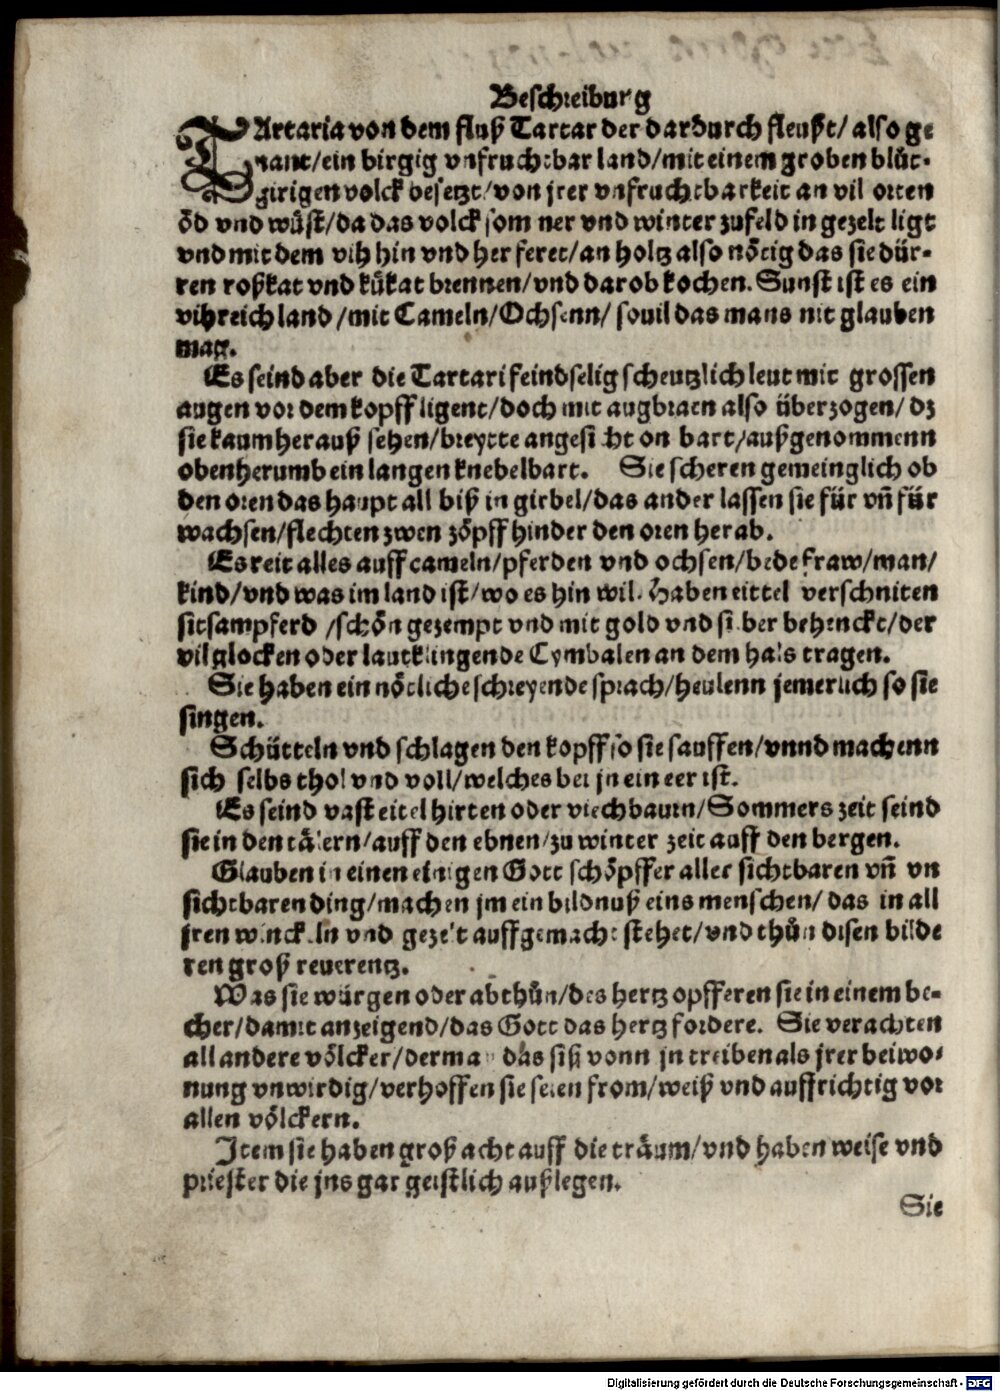 Beschreibung
TArtaria von dem fluß Tartar der dardurch fleußt/ also ge
nant/ein birgig vnfruchtbar land/mit einem groben blůt-
girigen volck besetzt/von jrer vnfruchtbarkeit an vil orten
öd vnd wůst/da das volck som ner vnd winter zufeld in gezelt ligt
vnd mit dem vih hin vnd her feret/an holtz also nötig das sie dür-
ren roßkat vnd kůkat brennen/vnd darob kochen. Sunst ist es ein
vihreich land /mit Cameln/Ochsenn/ souil das mans nit glauben
mag.
Es seind aber die Tartari feindselig scheutzlich leut mit grossen
augen vor dem kopff ligent/doch mit augbraen also überzogen/ dz
sie kaum herauß sehen/breytte angesicht on bart/außgenommenn
obenherumb ein langen knebelbart. Sie scheren gemeinglich ob
den oren das haupt all biß in girbel/das ander lassen sie für vñ für
wachsen/flechten zwen zöpff hinder den oren herab.
Es reit alles auff cameln/pferden vnd ochsen/bede fraw/man/
kind/vnd was im land ist/wo es hin wil. Haben eittel verschniten
sitsam pferd /schön gezempt vnd mit gold vnd silber behenckt/der
vil glocken oder lautklingende Cymbalen an dem hals tragen.
Sie haben ein nötliche schreyende sprach/heulenn jemerlich so sie
singen.
Schütteln vnd schlagen den kopff so sie sauffen/vnnd machenn
sich selbs thol vnd voll/welches bei jn ein eer ist.
Es seind vast eitel hirten oder viechbaurn/Sommers zeit seind
sie in den tälern/auff den ebnen/zu winter zeit auff den bergen.
Glauben in einen einigen Gott schöpffer aller sichtbaren vñ vn
sichtbaren ding/machen jm ein bildnuß eins menschen/ das in all
jren winckeln vnd gezelt auffgemacht stehet/vnd thůn disen bilde
ren groß reuerentz.
Was sie würgen oder abthůn/des hertz opfferen sie in einem be-
cher/damit anzeigend/das Gott das hertz fordere. Sie verachten
all andere völcker/dermaß das siß vonn jn treiben als jrer beiwo-
nung vnwirdig/verhoffen sie seien from/weiß vnd auffrichtig vor
allen völckern.
Item sie haben groß acht auff die träum/vnd haben weise vnd
priester die jns gar geistlich außlegen.
Sie
Digitalisierung gefördert durch die Deutsche Forschungsgemeinschaft - DFG